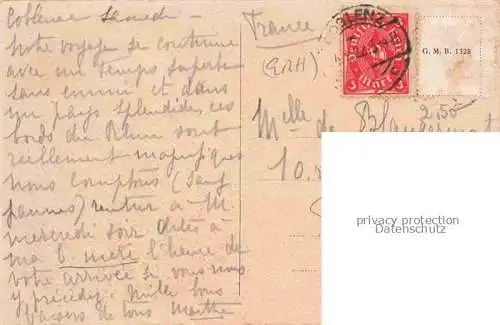 Coblence Samedi -
Notre voyage se continue
avec un temps superbe
sans ennui et dans
un pays splendide, ces
bords du Rhin sont
réellement magnifiques
nous comptons (sauf
pannes) rentrer à M.
mercredi soir dites à
ma b. mère l'heure de
votre arrivée si vous nous
y précédez. Mille bons
baisers de tous Marthe
France
COBLENZ
G. M. B. 1328
2,50
Melle de
10.
privacy protection
www.oldthing.de